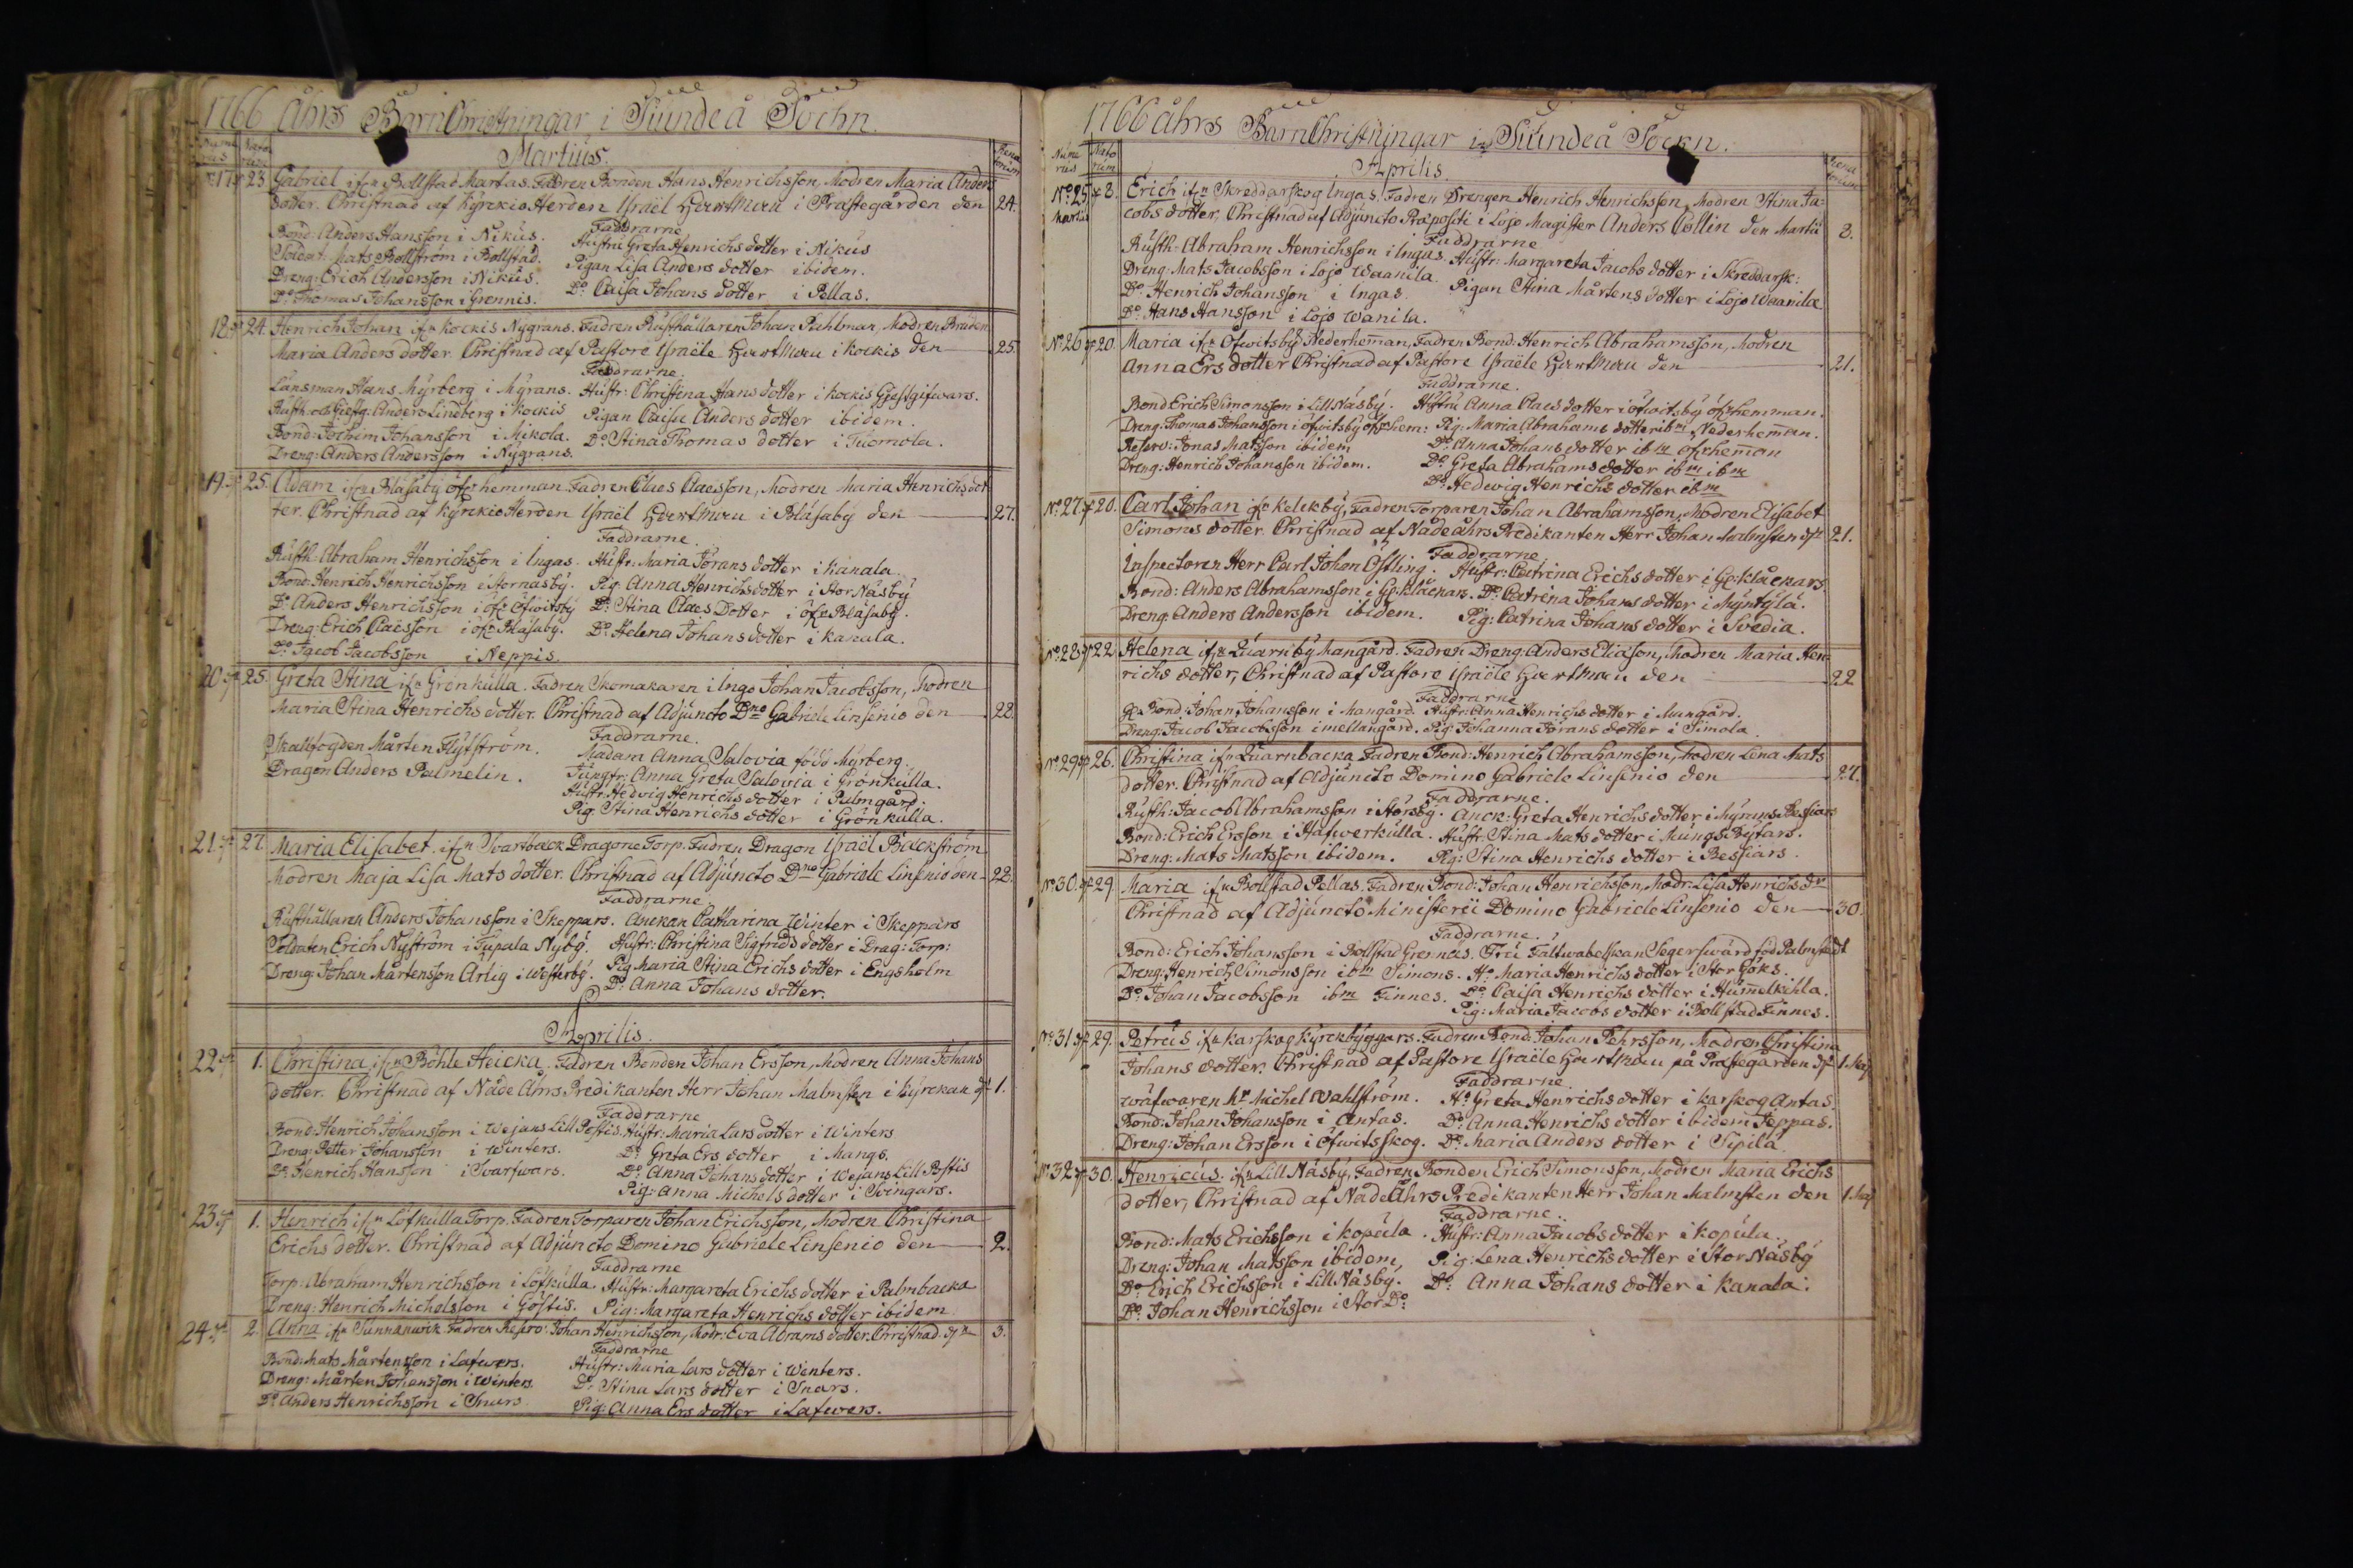 1766 åhrs BarnChristningar i Siundeå Sochn.
Nume rus Nato rum Martius. Rena torum
17 23 Gabriel ifrn Bollstad Martas. Fadren Bonden Hans Henrichsson, Modren Maria Anders
dotter. Christnad af KyrckioHerden Israël Hartman i Prästegården den 24.
Faddrarne
Bond: Anders Hansson i Nikus. Hustru Greta Henrichs dotter i Nikus
Soldat: Mats Bollström i Bollstad. Pigan Lisa Anders dotter ibidem.
Dreng: Erich Andersson i Nikus. Do Caisa Johans dotter i Pellas.
Do Thomas Johansson i Grennis.
18 24. Henrich Johan ifrn Kockis Nygrans. Fadren Rusthållaren Johan Pahlman, Modren
Maria Anders dotter. Christnad af Pastore Israële Hartman i Kockis den 25.
Faddrarne.
Länsman Hans Myrberg i Myrans. Hustr: Christina Hans dotter i Kockis Gjestgifwars.
Rusth: och Giestg: Anders Lineberg i Kockis Pigan Caisa Anders dotter ibidem.
Bond: Jochim Johansson i Mikola. Do Stina Thomas dotter i Tuomola.
Dreng: Anders Andersson i Nygrans.
19 25. Adam ifrn Blåsaby öfr hemman. Fadren Claes Claesson, Modren Maria Henrichs dot
ter. Christnad af KyrckioHerden Israël Hartman i Blåsaby den 27.
Faddrarne.
Rusth: Abraham Henrichsson i Ingas. Hustr: Maria Jörans dotter i Kanala.
Bond: Henrich Henrichsson i Stornäsby. Pig: Anna Henrichsdotter i Stor Näsby
Do Anders Henrichsson i öfr Öfwitsby Do Stina Claes Dotter i öfr Blåsaby.
Dreng: Erich Claesson i öfr Blåsaby. Do Helena Johans dotter i Kanala.
Do Jacob Jacobsson i Neppis.
20 25. Greta Stina ifrn Grönkulla. Fadren Skomakaren i Ingo Johan Jacobsson, Modren
Maria Stina Henrichs dotter. Christnad af Adjuncto Dno Gabriele Linsenio den 28.
Faddrarne.
Skallfogden Mårten Flyström. Madam Anna Salovia född Myrberg.
Dragon Anders Palmelin. Jungfr: Anna Greta Salovia i Grönkulla.
Hustr: Hedvig Henrichs dotter i Palmgård.
Pig: Stina Henrichs dotter i Grönkulla.
21. 27. Maria Elisabet. ifrn Svartback Dragone Torp. Fadren Dragon Israël Bäckström
Modren Maja Lisa Mats dotter. Christnad af Adjuncto Dno Gabriele Linsenio den 22.
Faddrarne
Rusthållaren Anders Johansson i Skeppars. Anckan Catharina Winter i Skeppars
Soldaten Erich Nyström i Tupala Nyby. Hustr: Christina Sigfrids dotter i Drag: Torp:
Dreng: Johan Mårtensson Arlig i Westerby. Pig Maria Stina Erichs dotter i Engsholm
Do Anna Johans dotter.
Aprilis.
22 1. Christina ifrn Böhle Heicka. Fadren Bonden Johan Ersson, Modren Anna Johans
dotter. Christnad af Nåde Åhrs Predikanten Herr Johan Malmsten i Kyrckan 1.
Faddrarne
Bond: Henrich Johansson i Wejans Lill Postis. Hustr: Maria Lars dotter i Winters
Dreng: Petter Johansson i Winters. Do Greta Ers dotter i Mangs.
Do Henrich Hansson i Svartwars. Do Anna Johans dotter i Wejans Lill Postis
Pig: Anna Michels dotter i Svingars.
23 1. Henrich ifrn Löfkulla Torp. Fadren Torparen Johan Erichsson, Modren Christina
Erichs dotter. Christnad af Adjuncto Domino Gabriele Linsenio den 2.
Faddrarne
Torp: Abraham Henrichsson i Löfkulla. Hustr: Margareta Erichs dotter i Palmbacka
Dreng: Henrich Michelsson i Göstis. Pig: Margareta Henrichs dotter ibidem
24 2. Anna ifrn Sunnanwik. Fadren Reserv: Johan Henrichsson, Modr: Eva Abrams dotter. Christnad 3.
Faddrarne
Bond: Mats Mårtensson i Lafwers. Hustr: Maria Lars dotter i Wenters.
Dreng: Mårten Johansson i Winters. Do Stina Lars dotter i Snars.
Do Anders Henrichsson i Snurs Pig: Anna Ers dotter i Lafwers.
1766 åhrs BarnChristningar i Siundeå Sockn.
Nume rus Nato rum Aprilis. Rena torum
No 25 8. Erich ifrn Skreddarskog Ingas. Fadren Drengen Henrich Henrichsson, Modren Stina Ja:
Martii cobs dotter, Christnad af Adjuncto Præpositi i Lojo Magister Anders Collin den Martii 8.
Faddrarne
Rusth: Abraham Henrichsson i Ingas. Hustr: Margareta Jacobs dotter i Skreddarsk:
Dreng: Mats Jacobsson i Lojo Waanila. Pigan Stina Mårtens dotter i Lojo Waanila
Do Henrich Johansson i Ingas.
Do Hans Hansson i Lojo Wanila.
No 26 20. Maria ifrn Öfwitsby Nederhemman, Fadren Bond: Henrich Abrahamsson, Modren
Anna Ers dotter Christnad af Pastore Israële Hartman den 21.
Faddrarne.
Bond Erich Simonsson i Lill Näsby. Hustru Anna Claes dotter i öfwitsby öfr hemman.
Dreng: Thomas Johansson i öfwitsby öfr hem: Pig: Maria Abrahams dotter ibm Nederhemman.
Reserv: Jonas Matsson ibidem Do Anna Johans dotter ibm öfr hemman
Dreng: Henrich Johansson ibidem. Do Greta Abrahams dotter ibm ibm
Do Hedwig Henrichs dotter ibm
No 27 20. Carl Johan ifrn Kelckby, Fadren Torparen Johan Abrahamsson, Modren Elisabet
Simons dotter. Christnad af Nådeåhrs Predikanten Herr Johan Malmsten 21.
Faddrarne
Inspectoren Herr Carl Johan Östling. Hustr: Catrina Erichs dotter i Gp:Klåckars.
Bond: Anders Abrahamsson i Gp:Klåckars. Do Catrina Johans dotter i Myntylä.
Dreng: Anders Andersson ibidem. Pig: Catrina Johans dotter i Svedia.
No 28 22 Helena ifrn Quarnby Mangård. Fadren Dreng: Anders Eliason, Modren Maria Hen
richs dotter, Christnad af Pastore Israële Hartman den 22
Faddrarne
Bond: Johan Johansson i Mangård. Hustr: Anna Henrichs dotter i Mangård.
Dreng: Jacob Jacobsson i mellangård. Pig: Johanna Jörans dotter i Simola.
No 29 26. Christina ifrn Quarnbacka. Fadren Bond: Henrich Abrahamsson, Modren Lena Mats
dotter. Christnad af Adjuncto Domino Gabriele Linsenio den 27.
Faddrarne.
Rusth: Jacob Abrahamsson i Störsby. Anck: Greta Henrichs dotter i Myrans Bessiars
Bond: Erich Ersson i Hafwerkulla. Hustr: Stina Mats dotter i Mungs Bysars.
Dreng: Mats Matsson ibidem. Pig: Stina Henrichs dotter i Bessiars.
No 30. 29. Maria ifrn Bollstad Pellas. Fadren Bond: Johan Henrichsson, Modr: Lisa Henrichs dr
Christnad af Adjuncto Ministerii Domino Gabriele Linsenio den 30.
Faddrarne.
Bond: Erich Johansson i Bollstad Grennäs. Fru Fältwäbelskan Segerswärd föd Palmstedt
Dreng: Henrich Simonsson ibm Simons. Ho Maria Henrichs dotter i Stor Göks.
Do Johan Jacobsson ibm Finnes. Do Caisa Henrichs dotter i Hummelkihla.
Pig: Maria Jacobs dotter i Bollstad Finnes.
No 31 29. Petrus ifrn Karskog Kyrckbyggars. Fadren Bond: Johan Pehrsson, Modren Christina
Johans dotter. Christnad af Pastore Israële Hartman på Prästegården 1. Maj
Faddrarne.
wäfwaren Mr Michel Wahlström. Ho Greta Henrichs dotter i Karskog Antas.
Bond: Johan Johansson i Antas. Do Anna Henrichs dotter i ibidem Jeppas.
Dreng: Johan Ersson i Öfwitsskog. Do Maria Anders dotter i Sipilä
No 32 30. Henricus. ifrn Lill Näsby, Fadren Bonden Erich Simonsson, Modren Maria Erichs
dotter, Christnad af NådeÅhrs Predikanten Herr Johan Malmsten den 1. Maj
Faddrarne.
Bond: Mats Erichsson i Kopula. Hustr: Anna Jacobs dotter i Kopula.
Dreng: Johan Matsson ibidem, Pig: Lena Henrichs dotter i Stor Näsby
Do Erich Erichsson i Lill Näsby. Do Anna Johans dotter i Kanala.
Do Johan Henrichsson i Stor Do